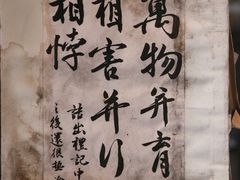 萬物并育
相害并行
相悖
語出禮記中
之後還很